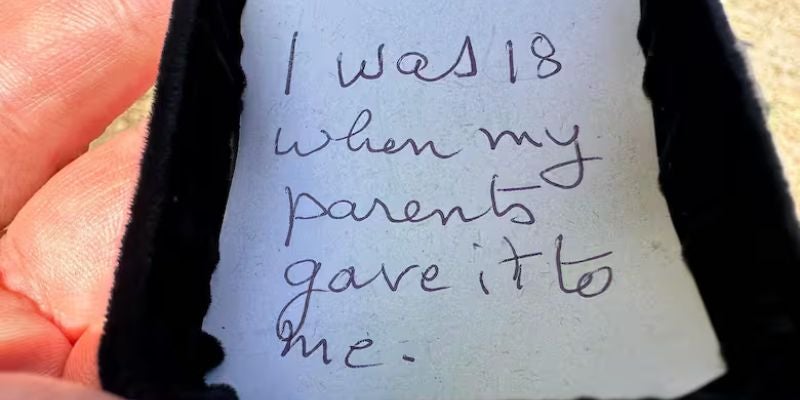 I was 18
when my
parents
gave it to
me.